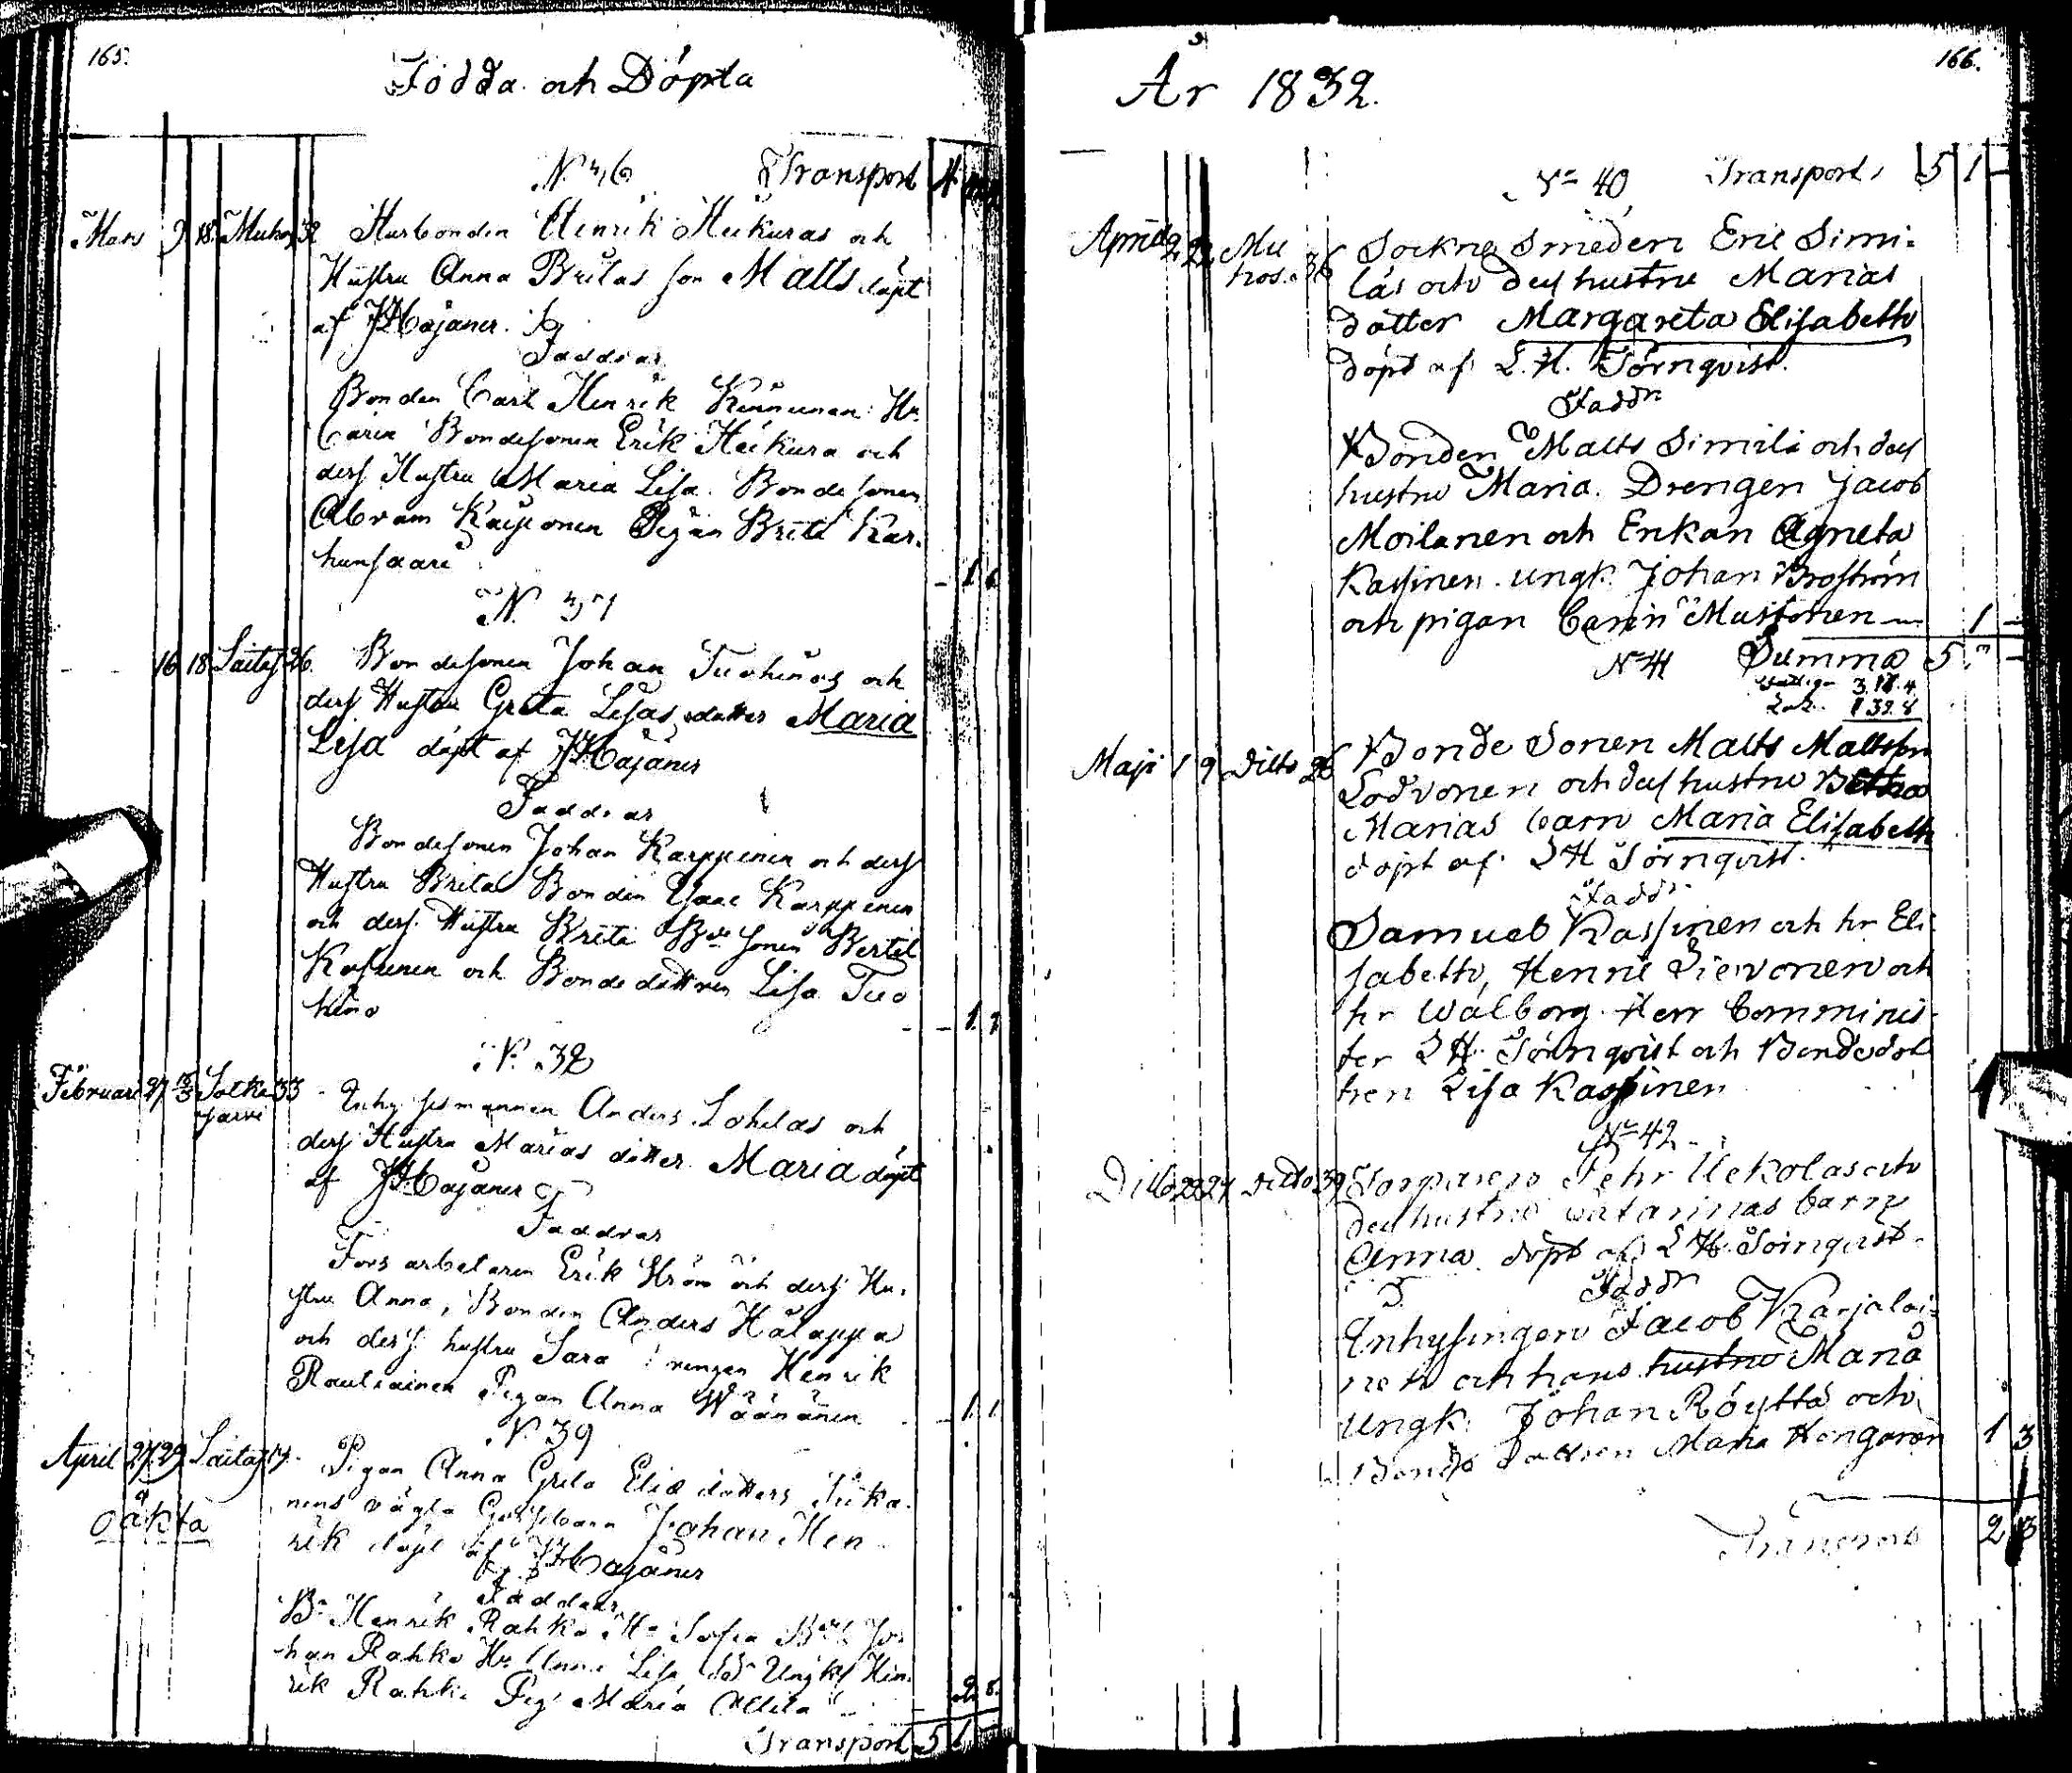 165.
Födda och Döpta
N. 36 Transport 4
Mars 9 18 Muhos 32 Husbonden Henrik Heikuras och
Hustru Anna Britas son Matts döpt
af JHCajaner.
Faddrar
Bonden Carl Henrik Kinnunen Hu
Carin Bondesonen Erik Heikura och
ders Hustru Maria Lisa. Bondesonen
Abram Pigan Brita Kar-
hunsaari
N. 37
16 18 26. Bondesonen Johan Tuohinos och
ders Hustru Greta Lisas dotter Maria
Lisa döpt af JHCajaner
Faddrar
Bondesonen Johan Karppinen och ders
Hustru Brita Bonden Isaac Karppinen
och ders Hustru Brita Bde sonen Bertil
och Bondedottren Lisa Tuo
hino
N. 38
Februari 27 Sotka 33 Inhysesmannen Anders Lohilas och
jarvi
ders Hustru Marias dotter Maria döpt
af JHCajaner
Faddrar
Fors arbetaren Erik Ström och ders Hu-
stru Anna, Bonden Anders Hälappa
och ders hustru Sara Drengen Henrik
Rautiainen Pigan Anna Väänänen 1. 1
N 39
April 27 29 Pigan Anna Greta Eliæ dotters
oäkta
nens oägta Johan Hen
rik döpt af JHCajaner
Faddrar
Bn Henrik Rahko Hu Sofia Jo
han Rahko Hu Anna Lisa Ungk Hen
rik Rahko Pig Maria
Transport 5 1
166.
År 1832.
No 40 Transport 5 1 -
April 22 Mu
hos. 36 Sockne Smeden Eric Simi-
läs och des hustru Marias
dotter Margareta Elisabeth
döpt af L. H. Törnqvist.
Faddr
Bonden Matts Similä och des
hustru Maria. Drengen Jacob
Moilanen och Enkan Agneta
Kassinen. ungk. Johan Broström
och pigan Carin Mustonen - 1 -
No 41 Summa 5
3. 18. 4
1 32. 8
Maji 1 9 Ditto 26 Bonde Sonen Matts Mattsson
Lodvonen och des hustru
Marias barn Maria Elisabeth
döpt af. LH Törnqvist.
Faddr
Samuel Kassinen och hr Eli-
sabeth, Henric Sievonen och
hr Walborg. Herr Comminis-
ter LH. Törnqvist och Bondedot
tren Lisa Kassinen
No 42
Ditto 23 27 Ditto 39 Torparen Pehr Uckolas och
des hustru Catarinas barn
Anna döpt af LH. Törnqvist.
Faddr
Inhysingen Jacob Karjalai-
nen och hans hustru Maria
Ungk. Johan Röyttä och
Bonde Dottren Maria 1 3
Transport 2 3